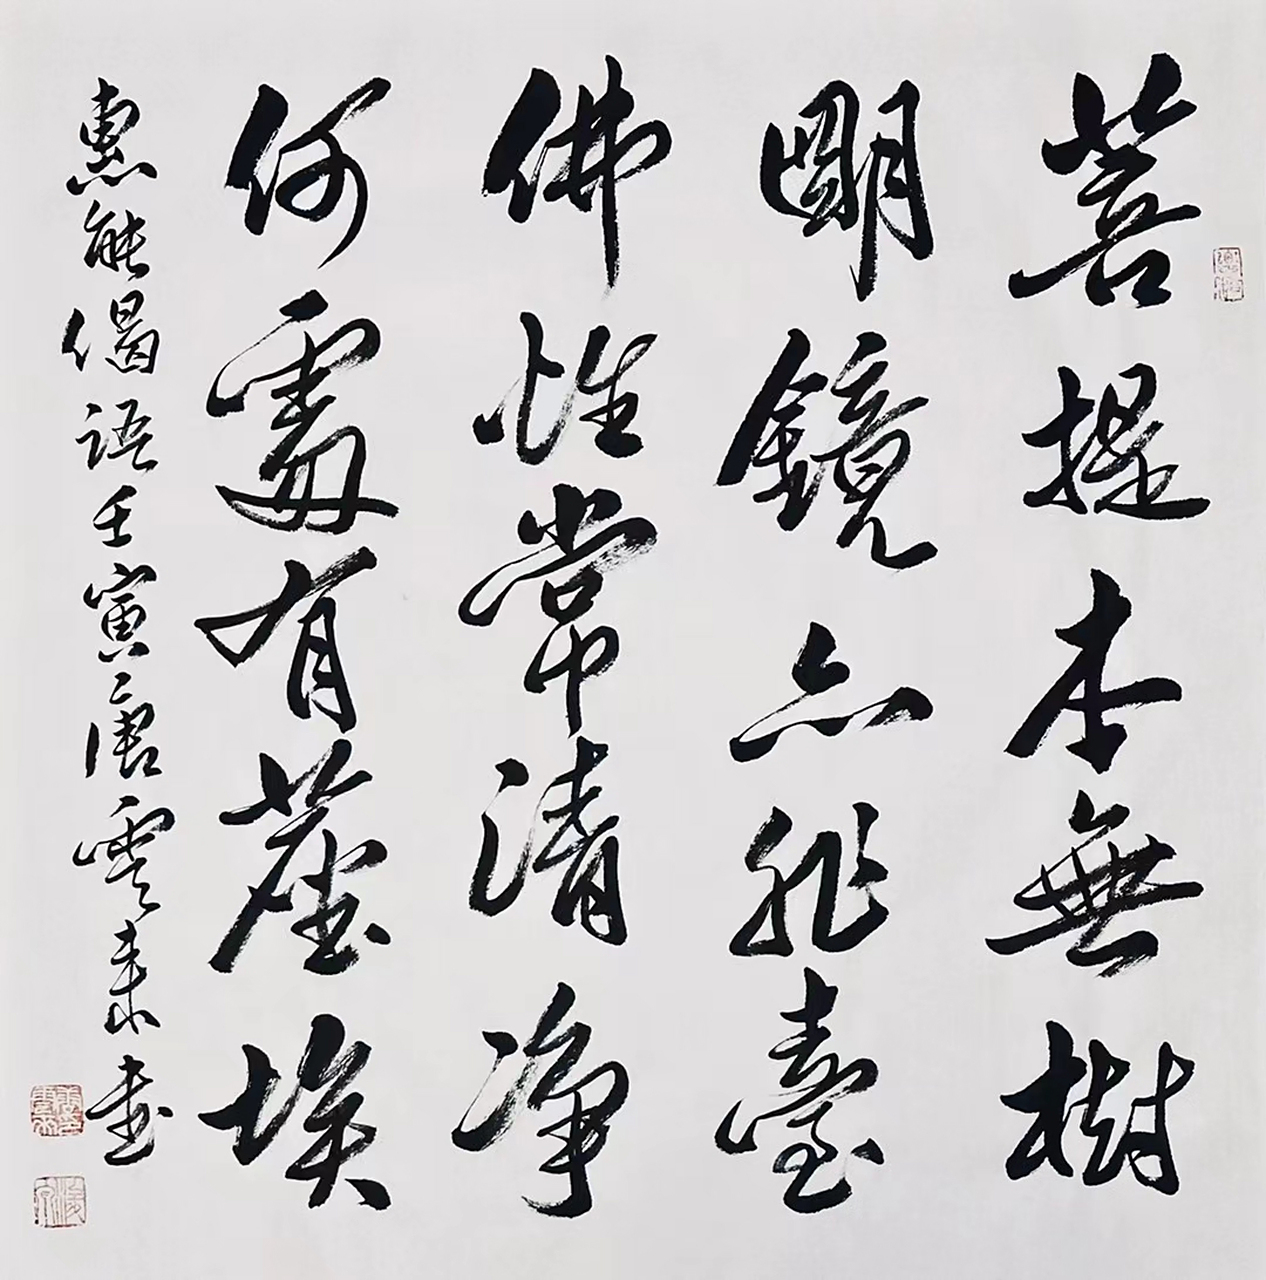 菩提本無樹
朙鏡亦非臺
佛性常清净
何處有塵埃
惠能偈語壬寅唐雲来書